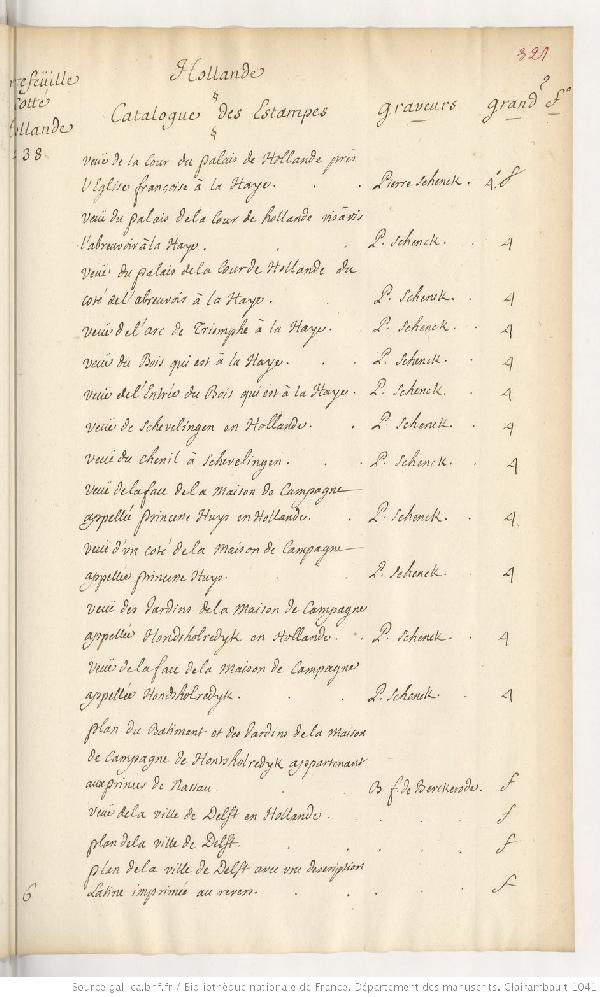 321
Hollande
Catalogue des Estampes graveurs grand.r fo
38.
veüe de la Cour du palais de Hollande près
l'Eglise françoise à la Haye. Pierre Schenck. 4.o f
veüe du palais de la Cour de hollande vis à vis
l'abreuvoir à la Haye. P. Schenck. 4
veüe du palais de la Cour de Hollande du
coté de l'abreuvoir à la Haye. P. Schenck. 4
veüe de l'arc de Triomphe à la Haye. P. Schenck. 4
veüe du Bois qui est à la Haye. P. Schenck. 4
veüe de l'Entrée du Bois qui est à la Haye. P. Schenck. 4
veüe de Schevelingen en Hollande. P. Schenck. 4
veüe du chenil à Schevelingen. P. Schenck. 4
veüe de la face de la Maison de Campagne
appellée princene Huys en Hollande. P. Schenck. 4
veüe d'un coté de la Maison de Campagne
appellée princene Huys. P. Schenck. 4
veüe des Jardins de la Maison de Campagne
appellée Hondsholredyk en Hollande. P. Schenck. 4
veüe de la face de la Maison de Campagne
appellée Hondsholredyk. P. Schenck. 4
plan du Batiment et des Jardins de la Maison
de Campagne de Hondsholredyk appartenant
aux princes de Nassau. B f. de Berckerode. f
veüe de la ville de Delft en Hollande. f
plan de la ville de Delft. f
plan de la ville de Delft avec une description
Latine imprimée au revers. f
6
Source gallica.bnf.fr / Bibliothèque nationale de France. Département des manuscrits. Clairambault 1041